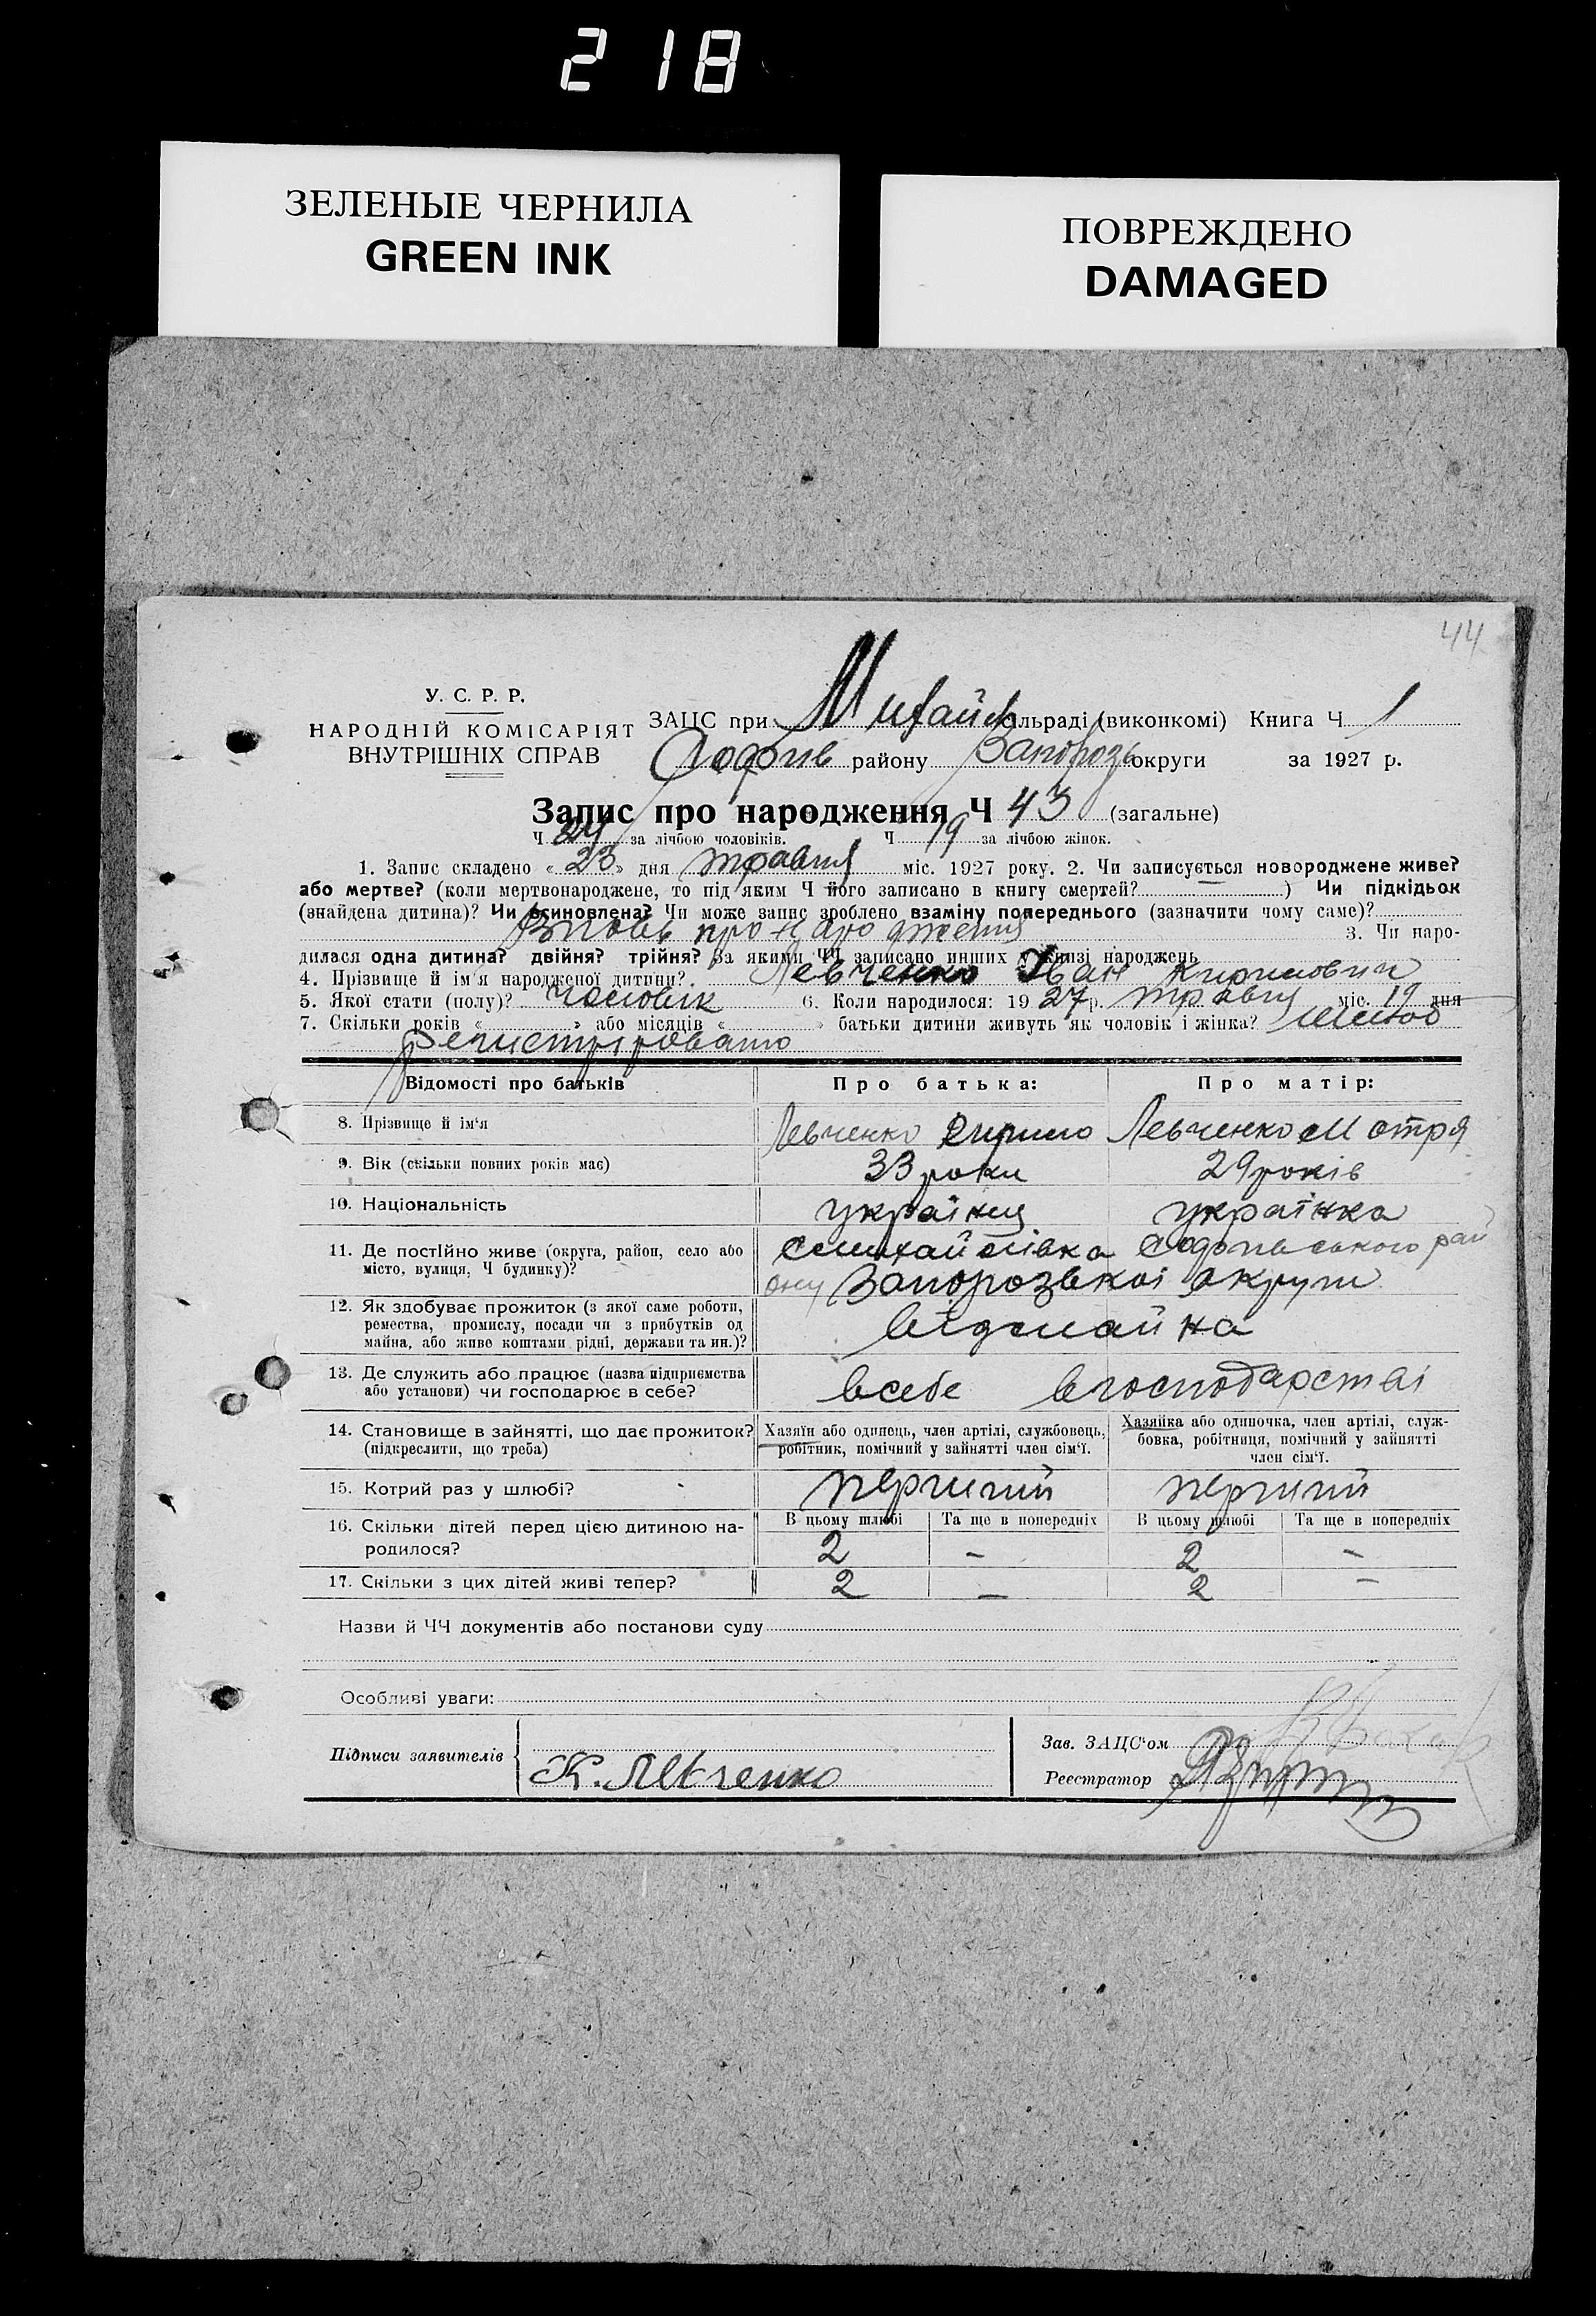 218
ЗЕЛЕНЫЕ ЧЕРНИЛА
GREEN INK
ПОВРЕЖДЕНО
DAMAGED
44
У. С. Р. Р.
НАРОДНІЙ КОМІСАРІЯТ
ВНУТРІШНІХ СПРАВ
ЗАЦС при Михайлів сільраді (виконкомі) Книга Ч 1
району Запорозь округи за 1927 р.
Запис про народження Ч 43 (загальне)
Ч 24 за лічбою чоловіків. Ч 19 за лічбою жінок.
1. Запис складено « 23 » дня травня міс. 1927 року. 2. Чи записується новороджене живе?
або мертве? (коли мертвонароджене, то під яким Ч його записано в книгу смертей? ) Чи підкідьок
(знайдена дитина)? Чи всиновлена? Чи може запис зроблено взаміну попереднього (зазначити чому саме)?
про народження 3. Чи наро-
дилася одна дитина? двійня? трійня? За якими ЧЧ записано инших у книзі народжень
4. Прізвище й ім'я народженої дитини? Левченко Іван Кирилович
5. Якої стати (полу)? чоловік 6. Коли народилося: 19 27 р. травня міс. 19 дня
7. Скільки років « » або місяців « » батьки дитини живуть як чоловік і жінка? шлюб
Регистріровано
Відомості про батьків Про батька: Про матір:
8. Прізвище й ім'я Левченко Кирило Левченко Мотря
9. Вік (скільки повних років має) 33 роки 29 років
10. Національність українц українка
11. Де постійно живе (округа, район, село або
місто, вулиця, Ч будинку)?
с Михайлівка Софопьвського рай
ону Запорозькоі округи
12. Як здобуває прожиток (з якої саме роботи,
ремества, промислу, посади чи з прибутків од
майна, або живе коштами рідні, держави та ин.)?
від майна
13. Де служить або працює (назва підприємства
або установи) чи господарює в себе?
всебе вгосподарстві
14. Становище в зайнятті, що дає прожиток?
(підкреслити, що треба)
Хазяїн або одинець, член артілі, службовець,
робітник, помічний у зайнятті член сім'ї.
Хазяйка або одиночка, член артілі, служ-
бовка, робітниця, помічний у зайнятті
член сім'ї.
15. Котрий раз у шлюбі? перший перший
16. Скільки дітей перед цією дитиною на-
родилося?
В цьому шлюбі Та ще в попередніх В цьому шлюбі Та ще в попередніх
2 – 2 –
17. Скільки з цих дітей живі тепер? 2 – 2 –
Назви й ЧЧ документів або постанови суду
Особливі уваги:
Підписи заявителів К. Левченко
Зав. ЗАЦС'ом
Реестратор